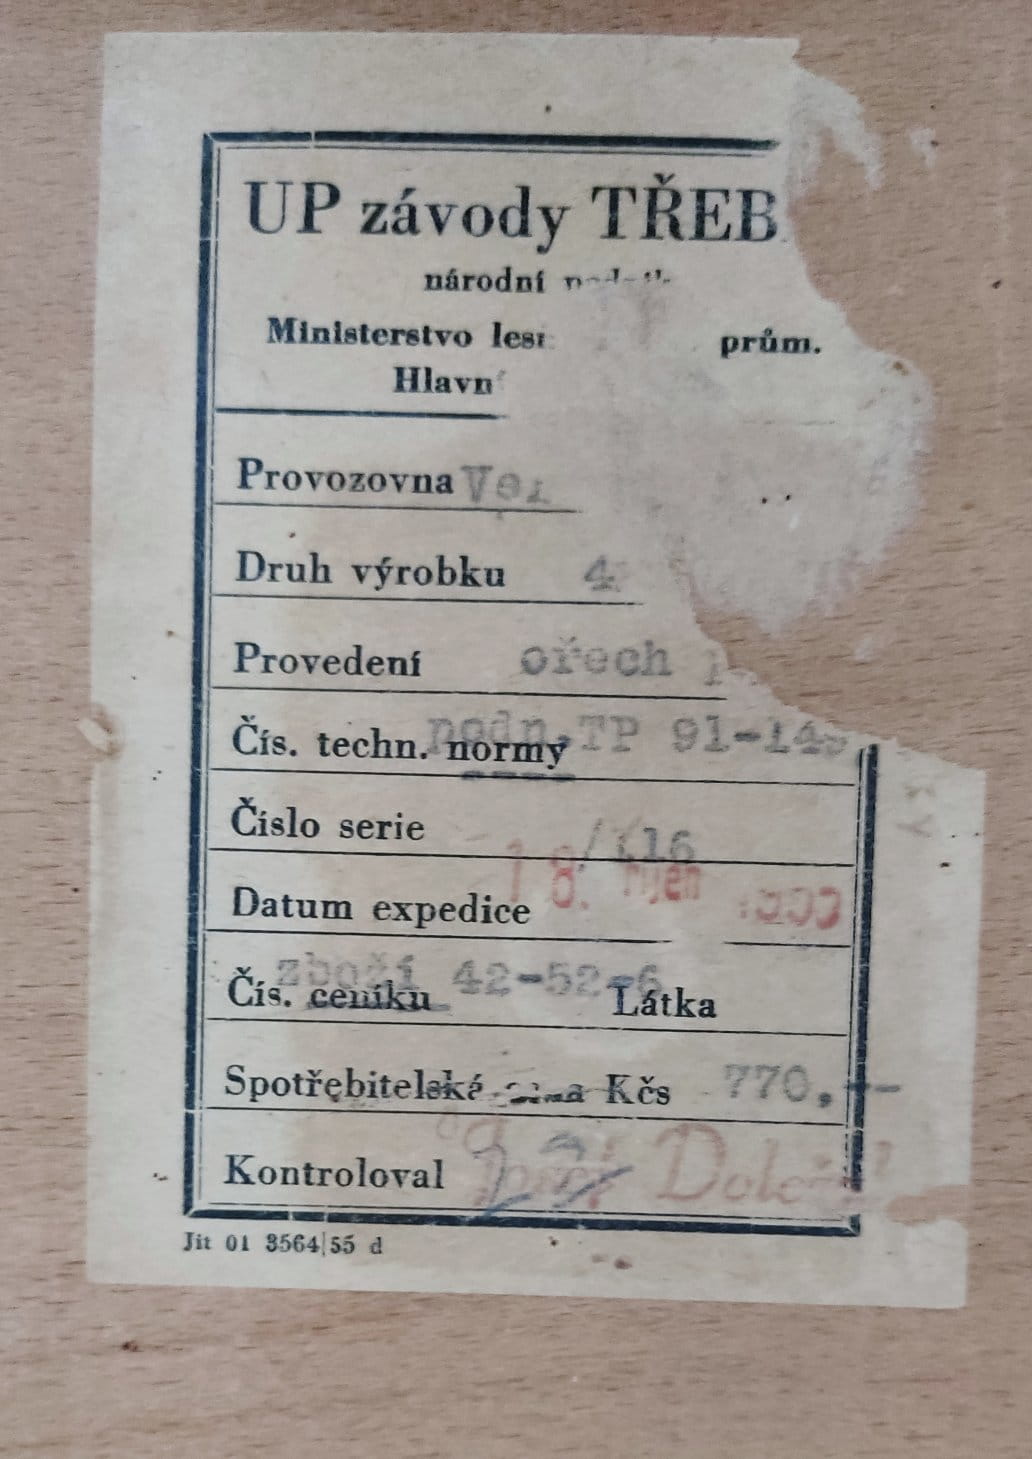 UP závody TŘEB
národní
Ministerstvo prům.
Provozovna
Druh výrobku 4
Provedení ořech
Čís. techn. normy podn. TP 91-143
Číslo serie /116
Datum expedice 18. říjen
Čís. ceníku zboží 42-52-6 Látka
Spotřebitelská cena Kčs 770,--
Kontroloval
Jit 01 3564/55 d